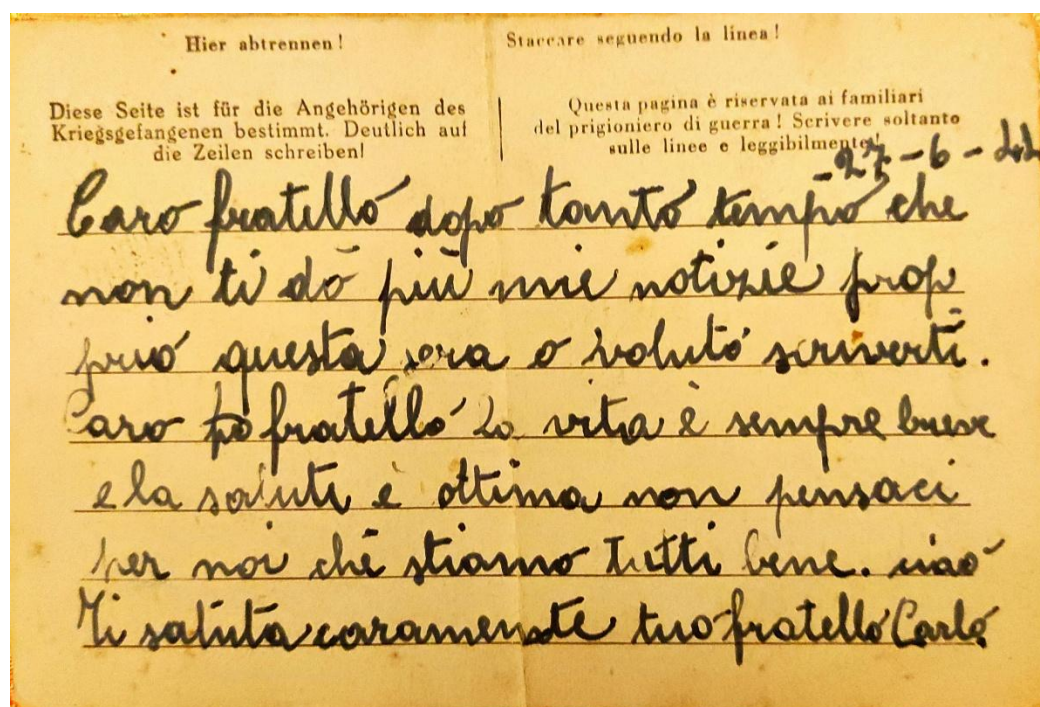 Hier abtrennen!
Staccare seguendo la linea!
Diese Seite ist für die Angehörigen des
Kriegsgefangenen bestimmt. Deutlich auf
die Zeilen schreiben!
Questa pagina è riservata ai familiari
del prigioniero di guerra! Scrivere soltanto
sulle linee e leggibilmente!
-27-6-44
Caro fratello dopo tanto tempo che
non ti dò più mie notizie prop
prio questa sera o voluto scriverti.
Caro fratello la vita è sempre breve
e la saluti è ottima non pensaci
per noi che stiamo tutti bene. ciao
Ti saluta caramente tuo fratello Carlo